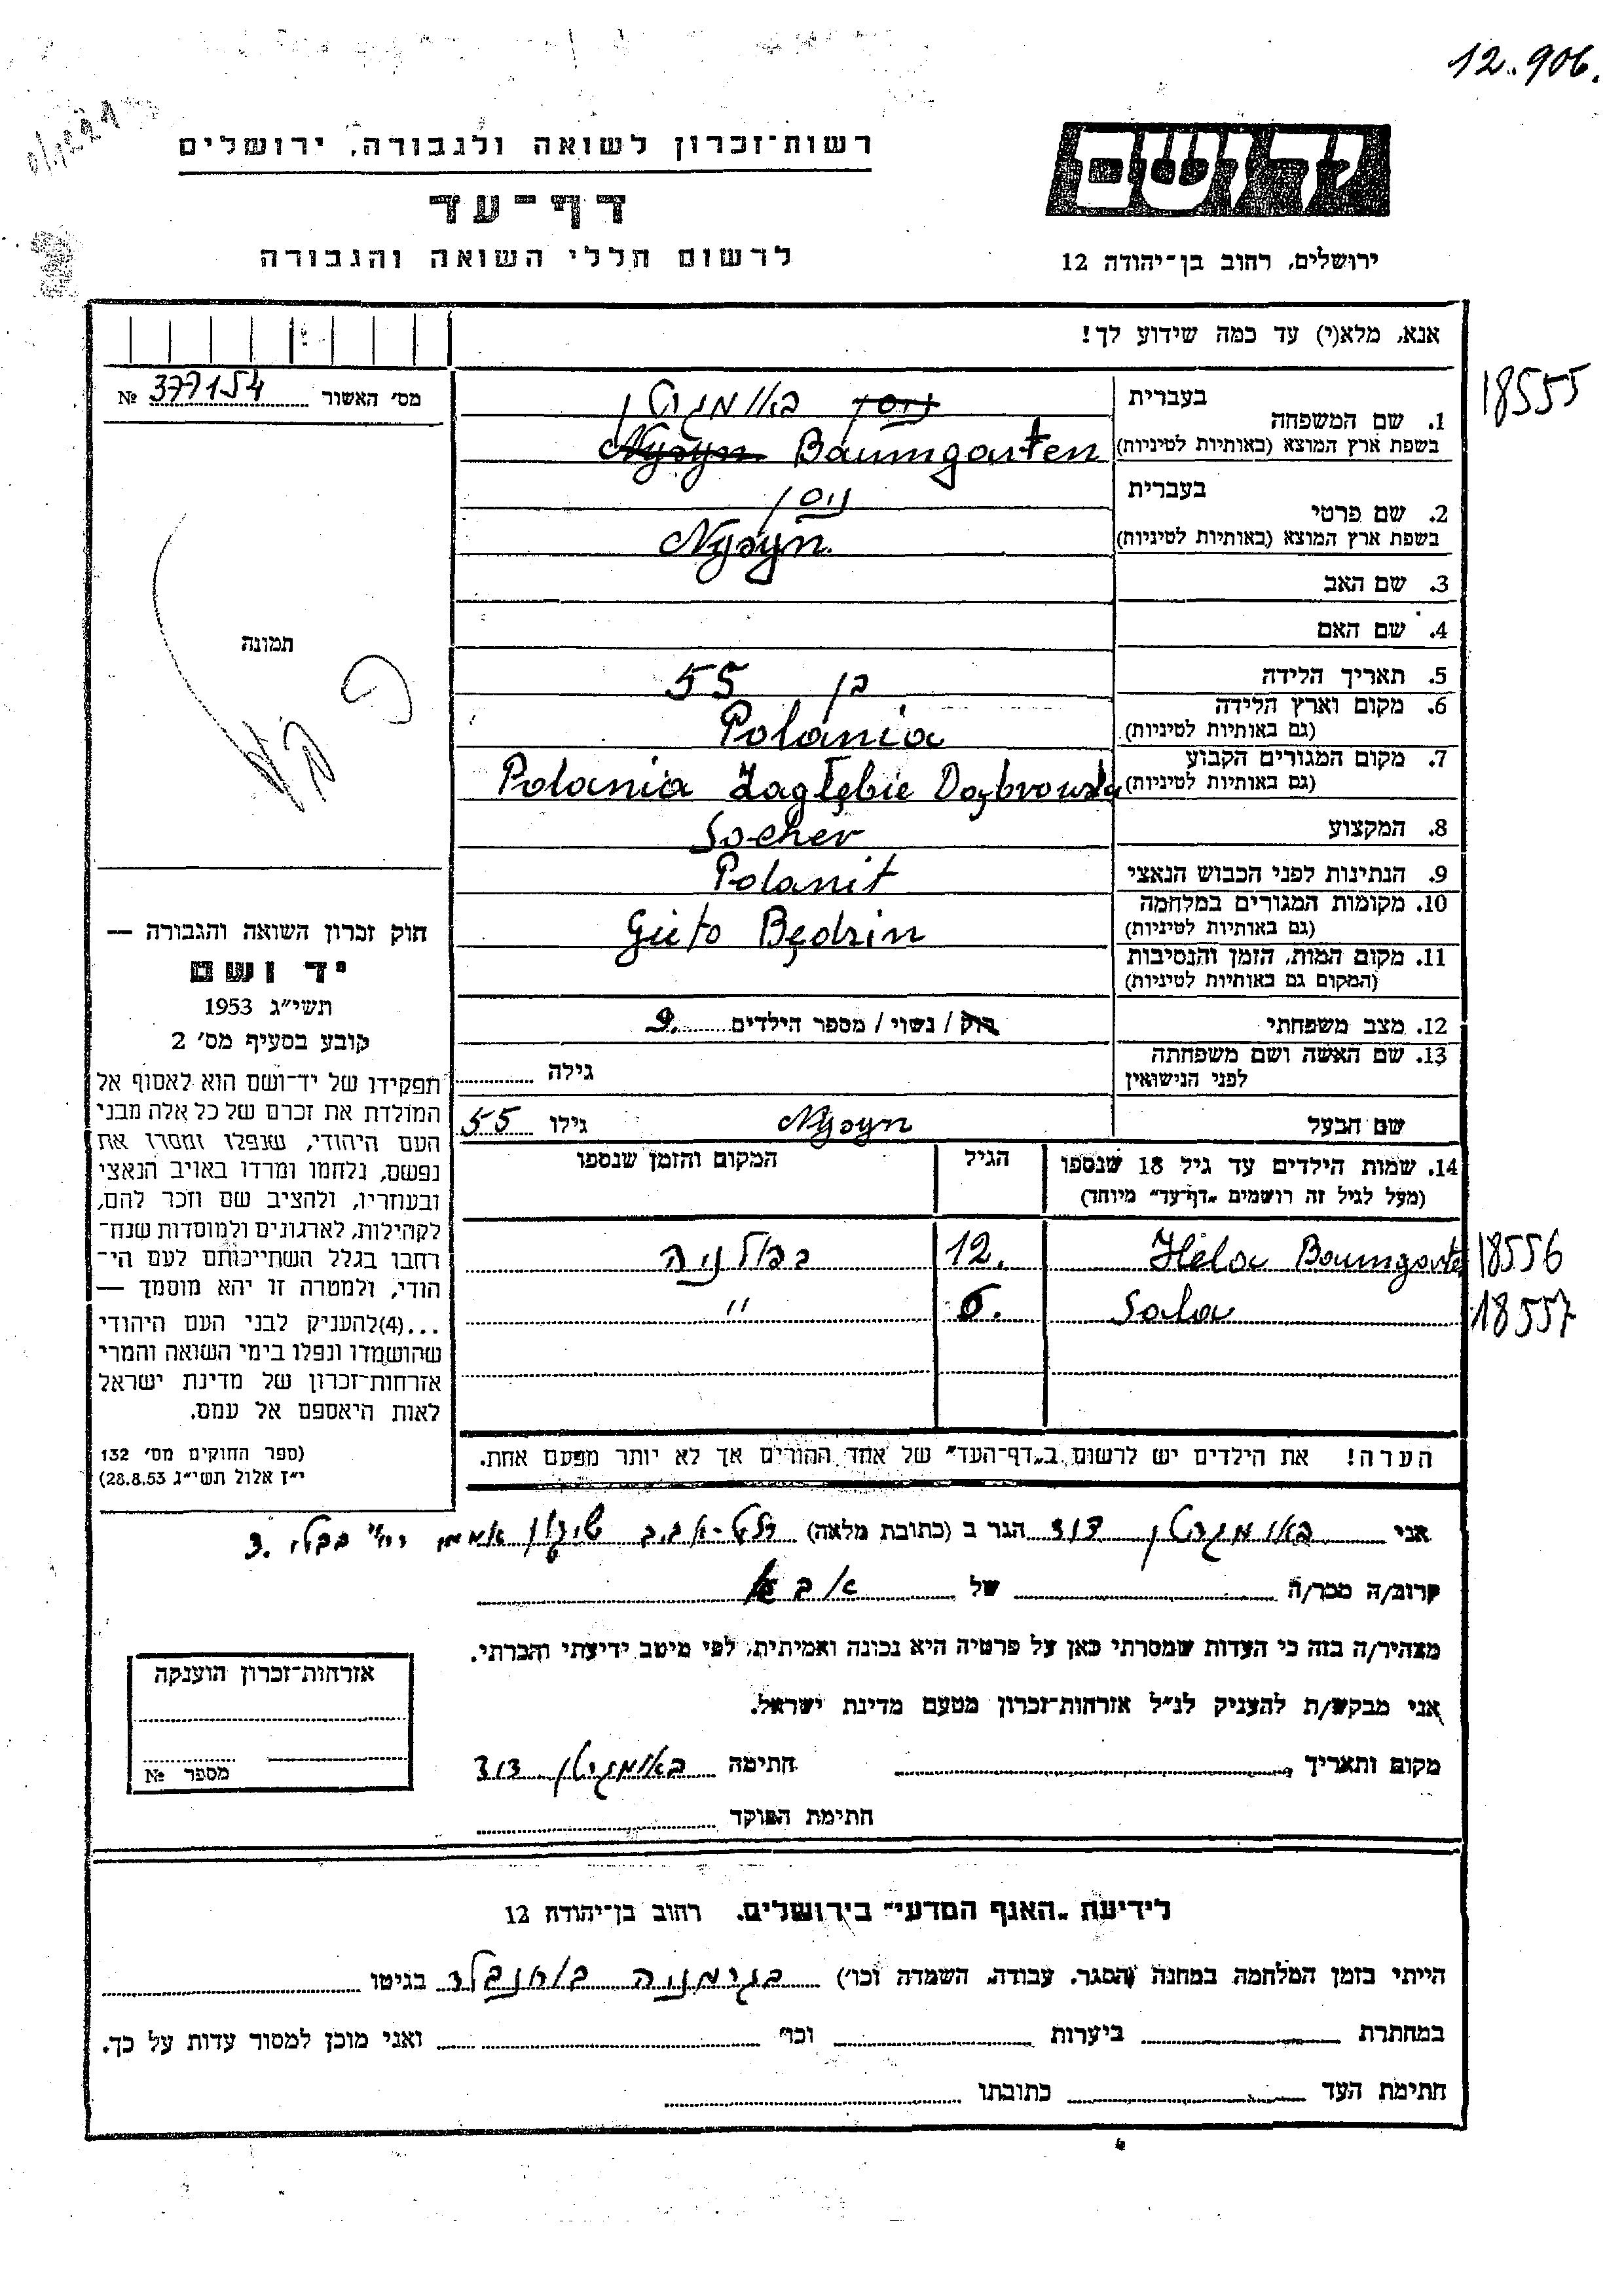 12.906.
יד ושם
רשות־זכרון לשואה ולגבורה, ירושלים
דף־עד
ירושלים, רחוב בן־יהודה 12
לרשום חללי השואה והגבורה
אנא, מלא(י) עד כמה שידוע לך!
18555
מס׳ האשור 377154 №
תמונה
1. שם המשפחה
בעברית ניסן באומגרטן
בשפת ארץ המוצא (באותיות לטיניות) Nysyn Baumgarten
2. שם פרטי
בעברית ניסן
בשפת ארץ המוצא (באותיות לטיניות) Nysyn
3. שם האב
4. שם האם
5. תאריך הלידה בן 55
6. מקום וארץ הלידה
(גם באותיות לטיניות) Polania
7. מקום המגורים הקבוע
(גם באותיות לטיניות) Polania Zagłębie Dąbrowska
8. המקצוע Socher
9. הנתינות לפני הכבוש הנאצי Polanit
10. מקומות המגורים במלחמה
(גם באותיות לטיניות) Gieto Będzin
11. מקום המות, הזמן והנסיבות
(המקום גם באותיות לטיניות)
12. מצב משפחתי רוק / נשוי / מספר הילדים 9.
13. שם האשה ושם משפחתה
לפני הנישואין גילה
שם הבעל Nysyn גילו 55
14. שמות הילדים עד גיל 18 שנספו הגיל המקום והזמן שנספו
(מעל לגיל זה רושמים „דף־עד״ מיוחד)
Hela Baumgarten 12. בפולניה 18556
Sala 6. " 18557
הערה! את הילדים יש לרשום ב„דף־העד״ של אחד ההורים אך לא יותר מפעם אחת.
חוק זכרון השואה והגבורה —
יד ושם
תשי״ג 1953
קובע בסעיף מס׳ 2
תפקידו של יד־ושם הוא לאסוף אל
המולדת את זכרם של כל אלה מבני
העם היהודי, שנפלו ומסרו את
נפשם, נלחמו ומרדו באויב הנאצי
ובעוזריו, ולהציב שם וזכר להם,
לקהילות, לארגונים ולמוסדות שנח־
רבו בגלל השתייכותם לעם הי־
הודי, ולמטרה זו יהא מוסמך —
...(4) להעניק לבני העם היהודי
שהושמדו ונפלו בימי השואה והמרי
אזרחות־זכרון של מדינת ישראל
לאות היאספם אל עמם.
(ספר החוקים מס׳ 132
י״ז אלול תשי״ג 28.8.53)
אני באומגרטן דוד הגר ב (כתובת מלאה) תל־אביב שיכון אממי רח׳ בבלי 3.
קרוב/ה מכר/ה של
מצהיר/ה בזה כי העדות שמסרתי כאן על פרטיה היא נכונה ואמיתית, לפי מיטב ידיעתי והכרתי.
אני מבקש/ת להעניק לנ״ל אזרחות־זכרון מטעם מדינת ישראל.
מקום ותאריך חתימה באומגרטן דוד
חתימת הפוקד
אזרחות־זכרון הוענקה
מספר №
לידיעת „האגף המדעי״ בירושלים, רחוב בן־יהודה 12
הייתי בזמן המלחמה במחנה (הסגר, עבודה, השמדה וכו׳) בגרמניה בגיטו
במחתרת ביערות וכו׳ ואני מוכן למסור עדות על כך.
חתימת העד כתובתו